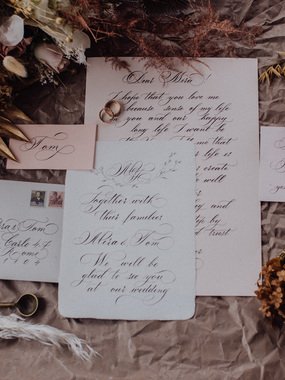 Dear Mira!
I hope that you love me
because sense of my life
you and our happy
long life I want be
me that
life is
create
will
and
by
trust
Tom
M&T
Together with
their families
Mira & Tom
We will be
glad to see you
at our wedding
Tom
Carlo 47
Rome